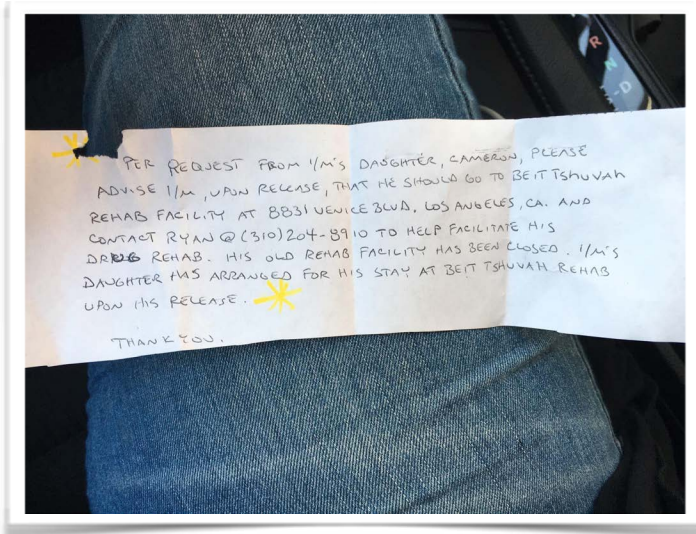 PER REQUEST FROM I/M'S DAUGHTER, CAMERON, PLEASE
ADVISE I/M, UPON RELEASE, THAT HE SHOULD GO TO BEIT TSHUVAH
REHAB FACILITY AT 8831 VENICE BLVD, LOS ANGELES, CA. AND
CONTACT RYAN @ (310)204-8910 TO HELP FACILITATE HIS
DRUG REHAB. HIS OLD REHAB FACILITY HAS BEEN CLOSED. I/M'S
DAUGHTER HAS ARRANGED FOR HIS STAY AT BEIT TSHUVAH REHAB
UPON HIS RELEASE.
THANK YOU.
R
N
D